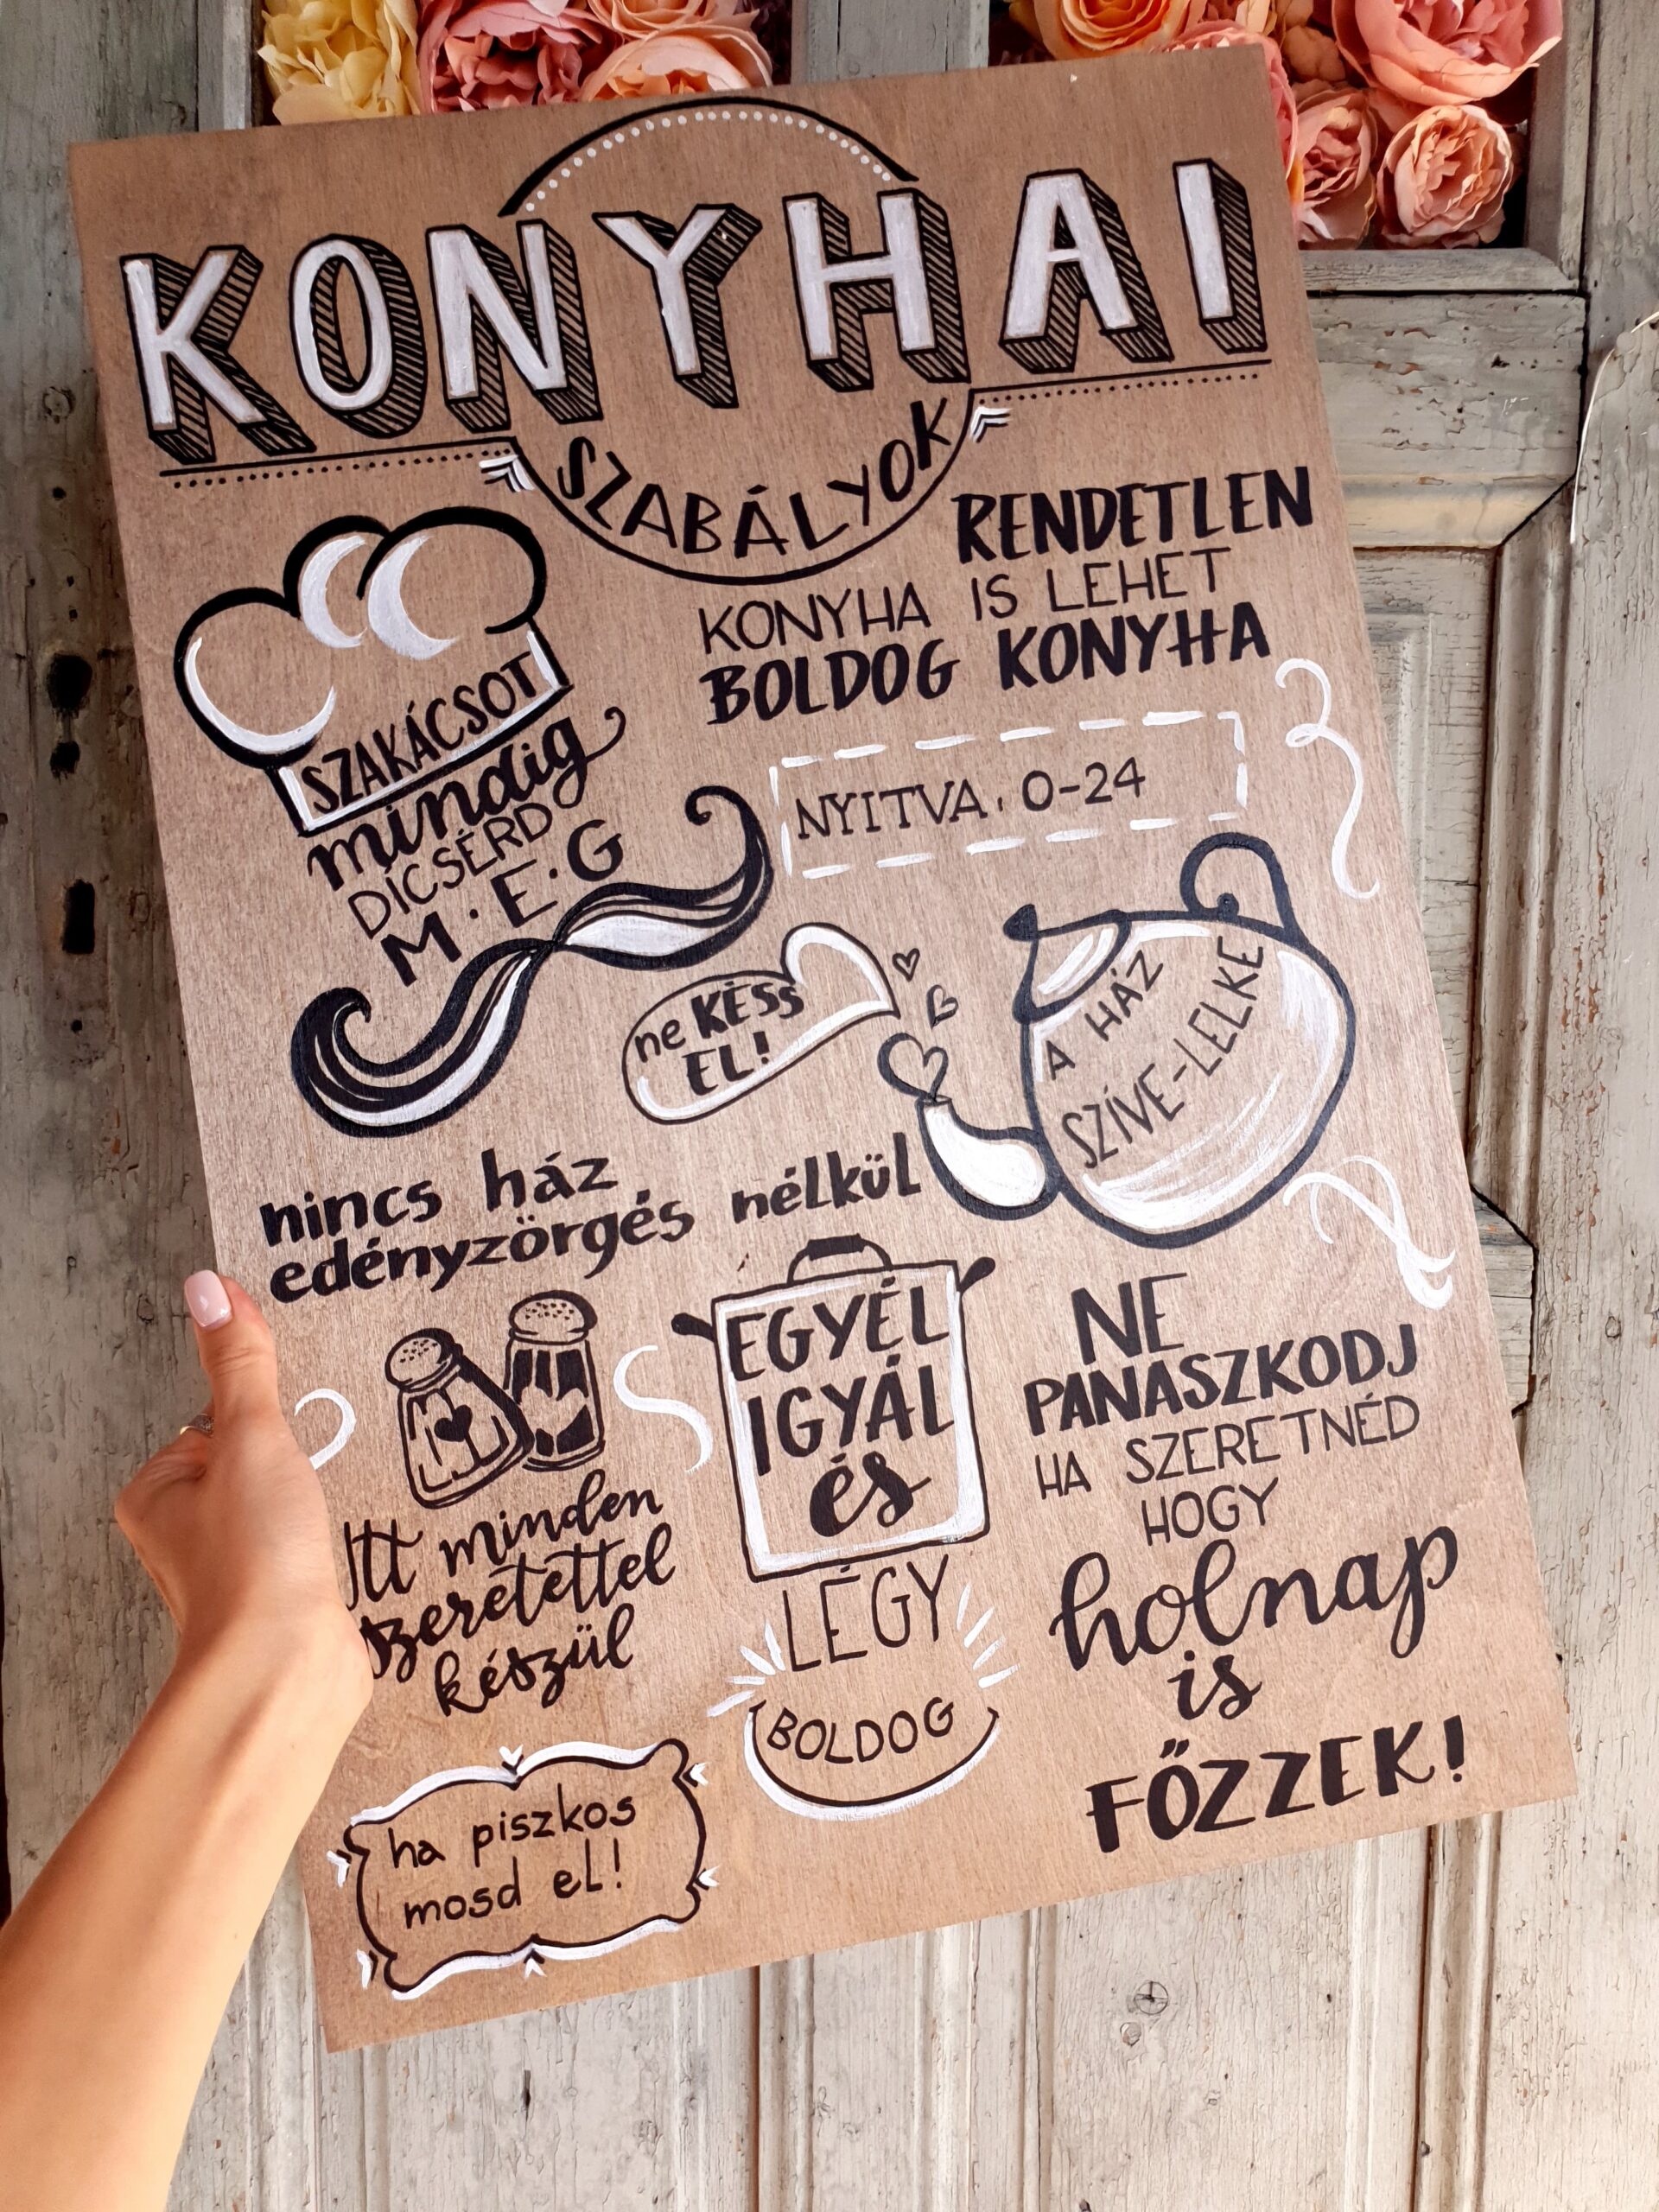 KONYHAI
SZABÁLYOK
RENDETLEN
KONYHA IS LEHET
BOLDOG KONYHA
SZAKÁCSOT
mindig
DICSÉRD
M.E.G
NYITVA: 0-24
ne KÉSS
EL!
A HÁZ
SZÍVE-LELKE
nincs ház
edényzörgés nélkül
EGYÉL
IGYÁL
és
LÉGY
BOLDOG
NE
PANASZKODJ
HA SZERETNÉD
HOGY
holnap
is
FŐZZEK!
Itt minden
szeretettel
készül
ha piszkos
mosd el!